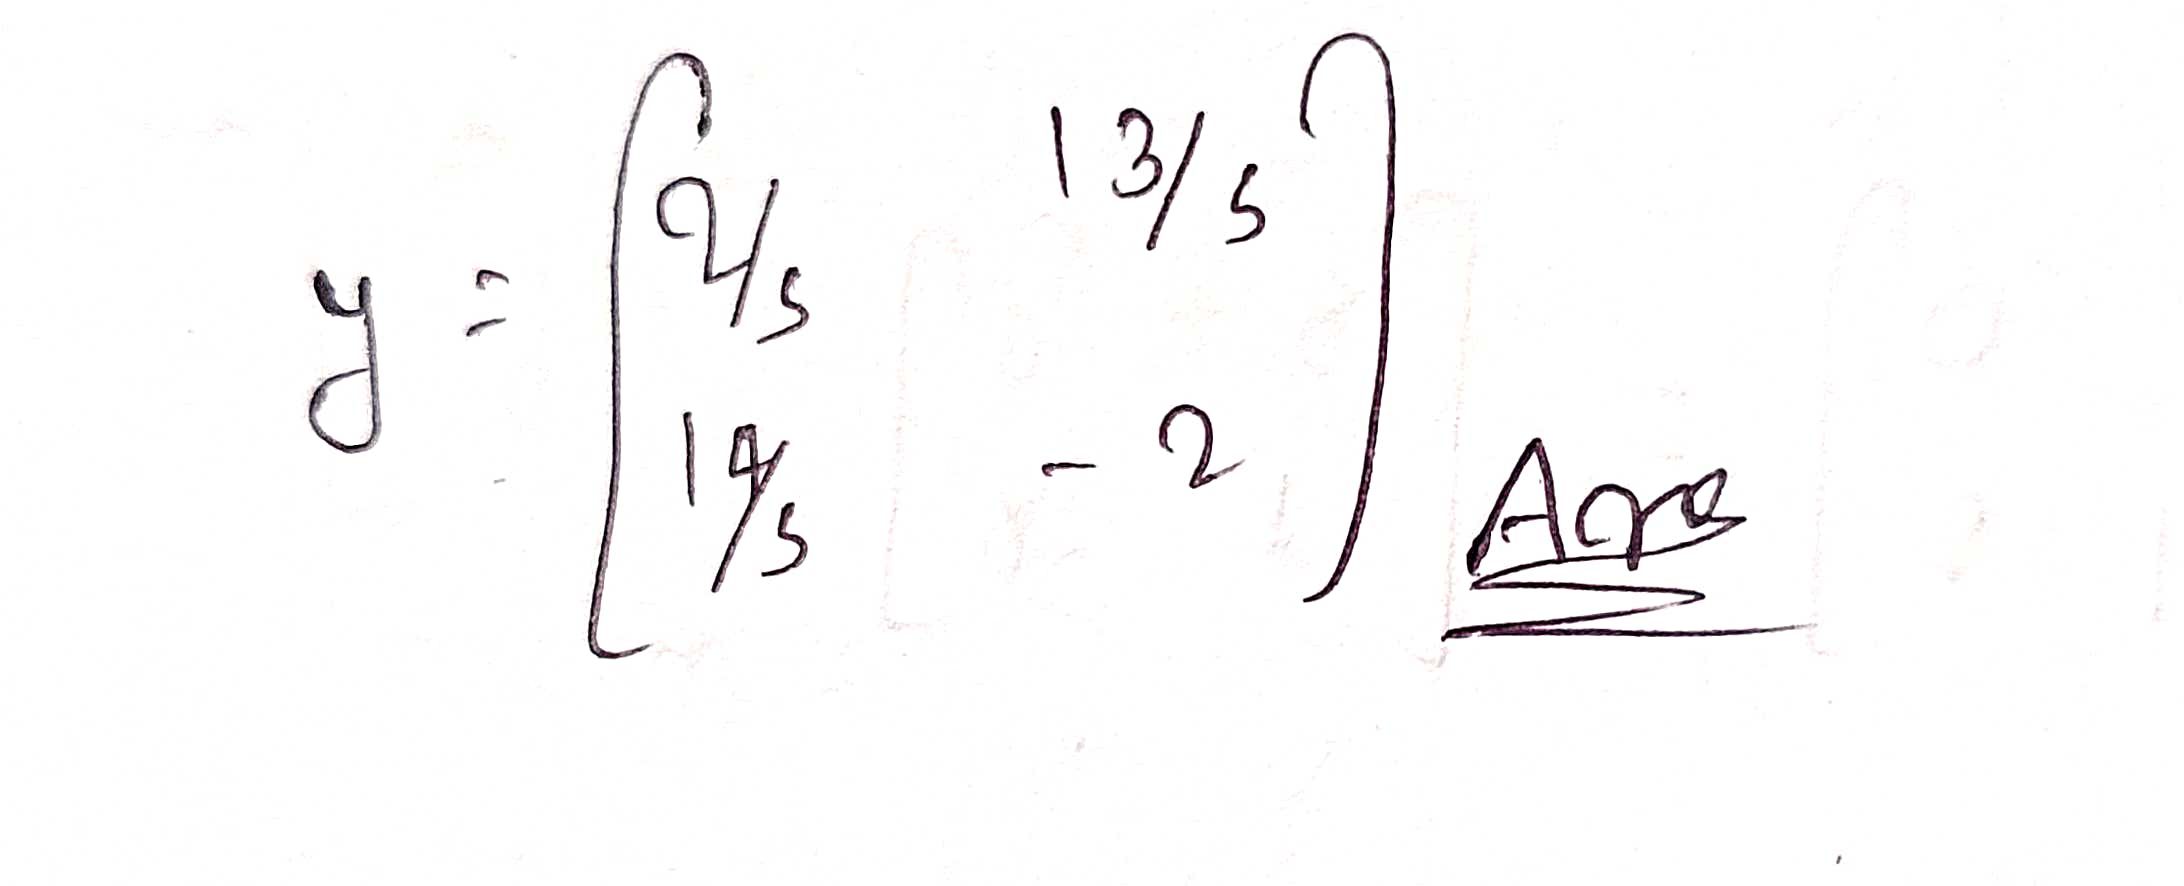 y = [2/5 13/5
14/5 -2] Ans